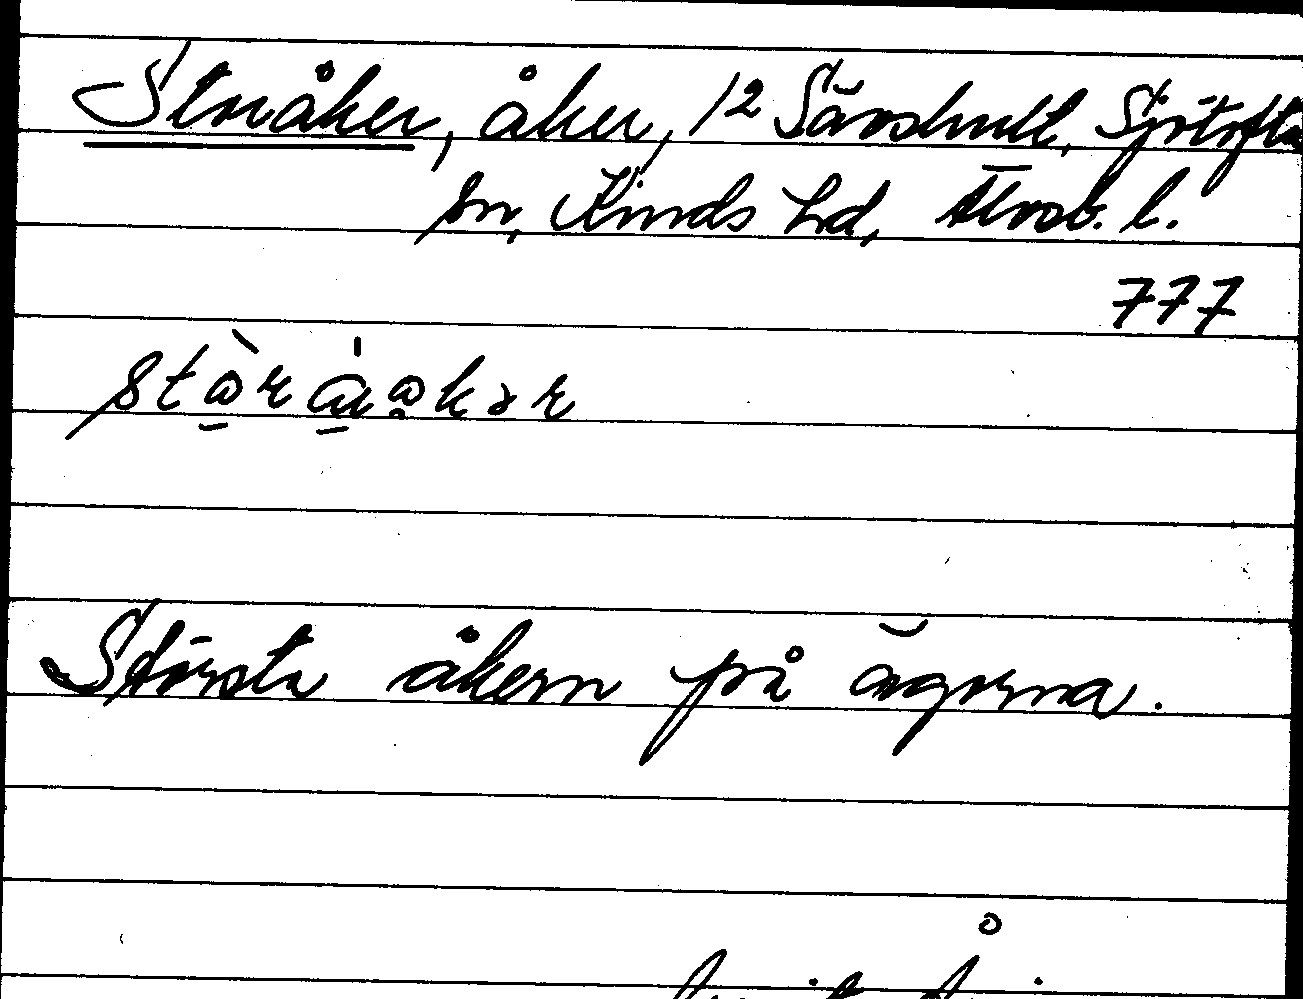 Storåker, åker, 12 Sävshult, Sjötofta
sn, Kinds hd, Älvsb. l.
777
Största åkern på ägorna.